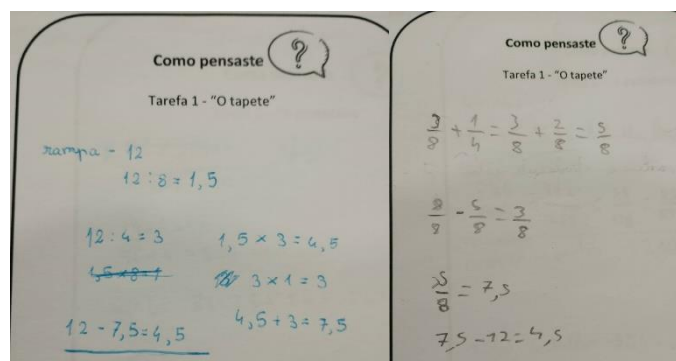 Como pensaste ?
Tarefa 1 - "O tapete"
rampa - 12
12 : 8 = 1,5
12 : 4 = 3
1,5 × 3 = 4,5
1,5 × 8 = 1
3 × 1 = 3
4,5 + 3 = 7,5
12 - 7,5 = 4,5
Como pensaste ?
Tarefa 1 - "O tapete"
3/8 + 1/4 = 3/8 + 2/8 = 5/8
8/8 - 5/8 = 3/8
5/8 = 7,5
7,5 - 12 = 4,5